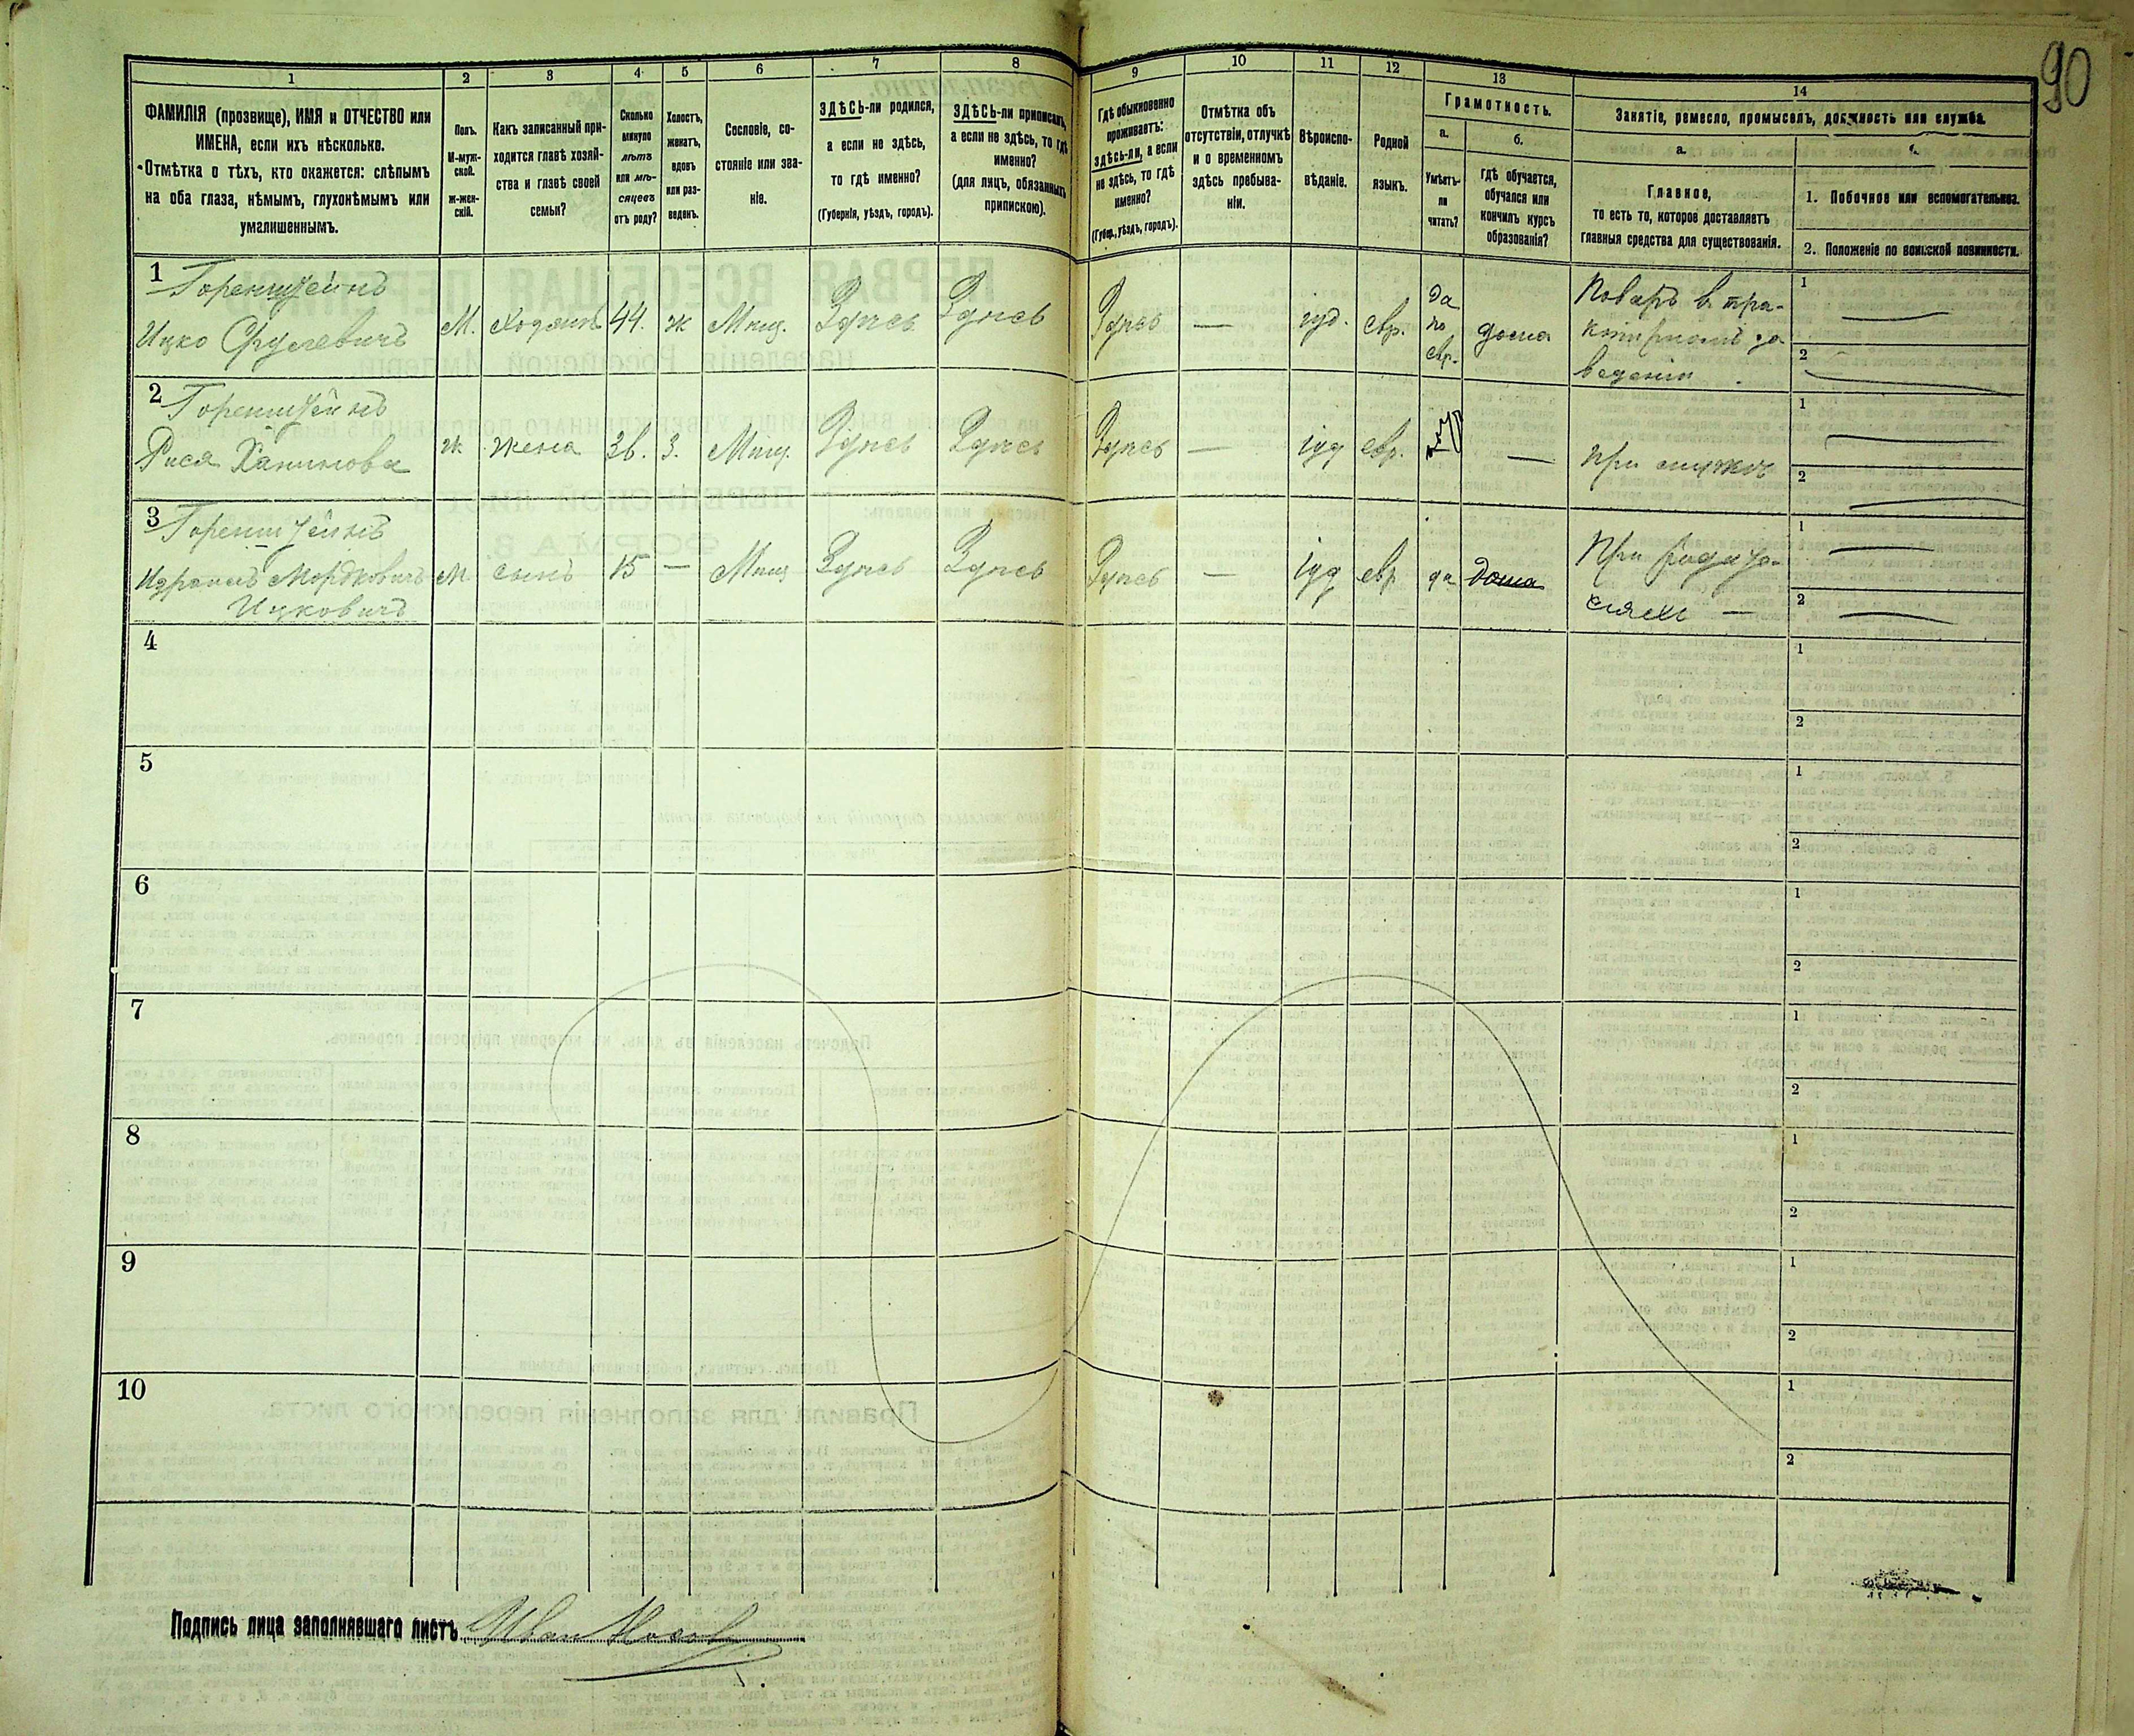 90
1 2 3 4 5 6 7 8 9 10 11 12 13 14
ФАМИЛІЯ (прозвище), ИМЯ и ОТЧЕСТВО или
ИМЕНА, если ихъ нѣсколько.
Отмѣтка о тѣхъ, кто окажется: слѣпымъ
на оба глаза, нѣмымъ, глухонѣмымъ или
умалишеннымъ.
Полъ.
М-муж-
ской.
ж-жен-
скій.
Какъ записанный при-
ходится главѣ хозяй-
ства и главѣ своей
семьи?
Сколько
минуло
лѣтъ
или мѣ-
сяцевъ
отъ роду?
Холостъ,
женатъ,
вдовъ
или раз-
веденъ.
Сословіе, со-
стояніе или зва-
ніе.
ЗДѢСЬ-ли родился,
а если не здѣсь,
то гдѣ именно?
(Губернія, уѣздъ, городъ).
ЗДѢСЬ-ли приписанъ,
а если не здѣсь, то гдѣ
именно?
(для лицъ, обязанныхъ
припискою).
Гдѣ обыкновенно
проживаетъ:
здѣсь-ли, а если
не здѣсь, то гдѣ
именно?
(Губер., уѣздъ, городъ).
Отмѣтка объ
отсутствіи, отлучкѣ
и о временномъ
здѣсь пребыва-
ніи.
Вѣроиспо-
вѣданіе.
Родной
языкъ.
Грамотность.
а.
Умѣетъ-
ли
читать?
б.
гдѣ обучается,
обучался или
кончилъ курсъ
образованія?
Занятіе, ремесло, промыселъ, должность или служба.
а.
Главное,
то есть то, которое доставляетъ
главныя средства для существованія.
б.
1. Побочное или вспомогательное.
2. Положеніе по воинской повинности.
1 Горенштейнъ
Ицко Срулевичъ М. хозяинъ 44. ж Мѣщ. Здѣсь Здѣсь Здѣсь — іуд. евр. да по евр. дома Поваръ в трактирномъ заведеніи. 1 — 2 —
2 Горенштейнъ
Рися Хаимова ж жена 36. З. Мѣщ. Здѣсь Здѣсь Здѣсь — іуд евр. — при мужѣ 1 — 2 —
3 Горенштейнъ
Израиль Мордковичъ М сынъ 15 — Мѣщ Здѣсь Здѣсь Здѣсь — іуд евр да дома При родителяхъ — 1 — 2 —
Ицковичъ
4 1 2
5 1 2
6 1 2
7 1 2
8 1 2
9 1 2
10 1 2
Подпись лица заполнявшаго листъ Иван